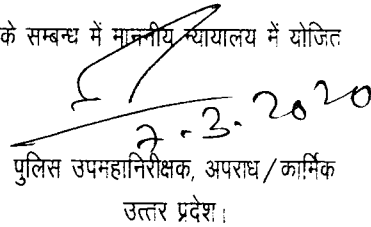 के सम्बन्ध में माननीय न्यायालय में योजित
7.3.2020
पुलिस उपमहानिरीक्षक, अपराध/कार्मिक
उत्तर प्रदेश।